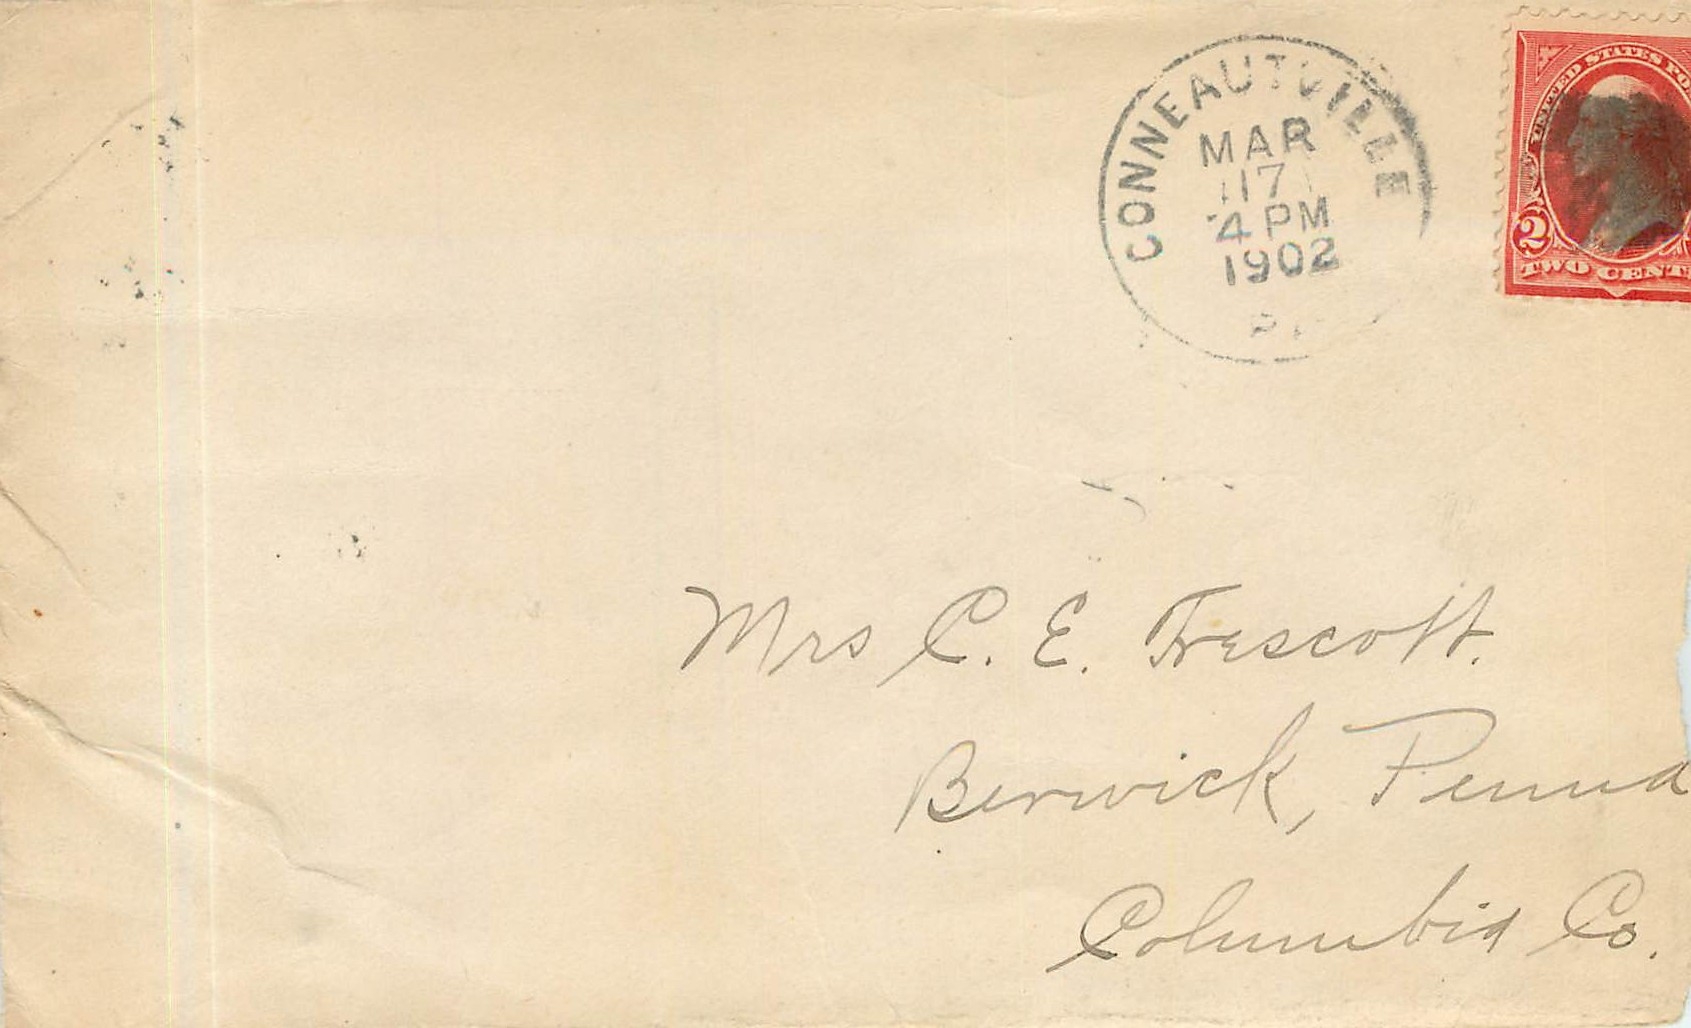 CONNEAUTVILLE
MAR
17
4 PM
1902
PA
UNITED STATES PO
2
TWO CENT
Mrs C. E. Trescott.
Berwick, Penna
Columbia Co.